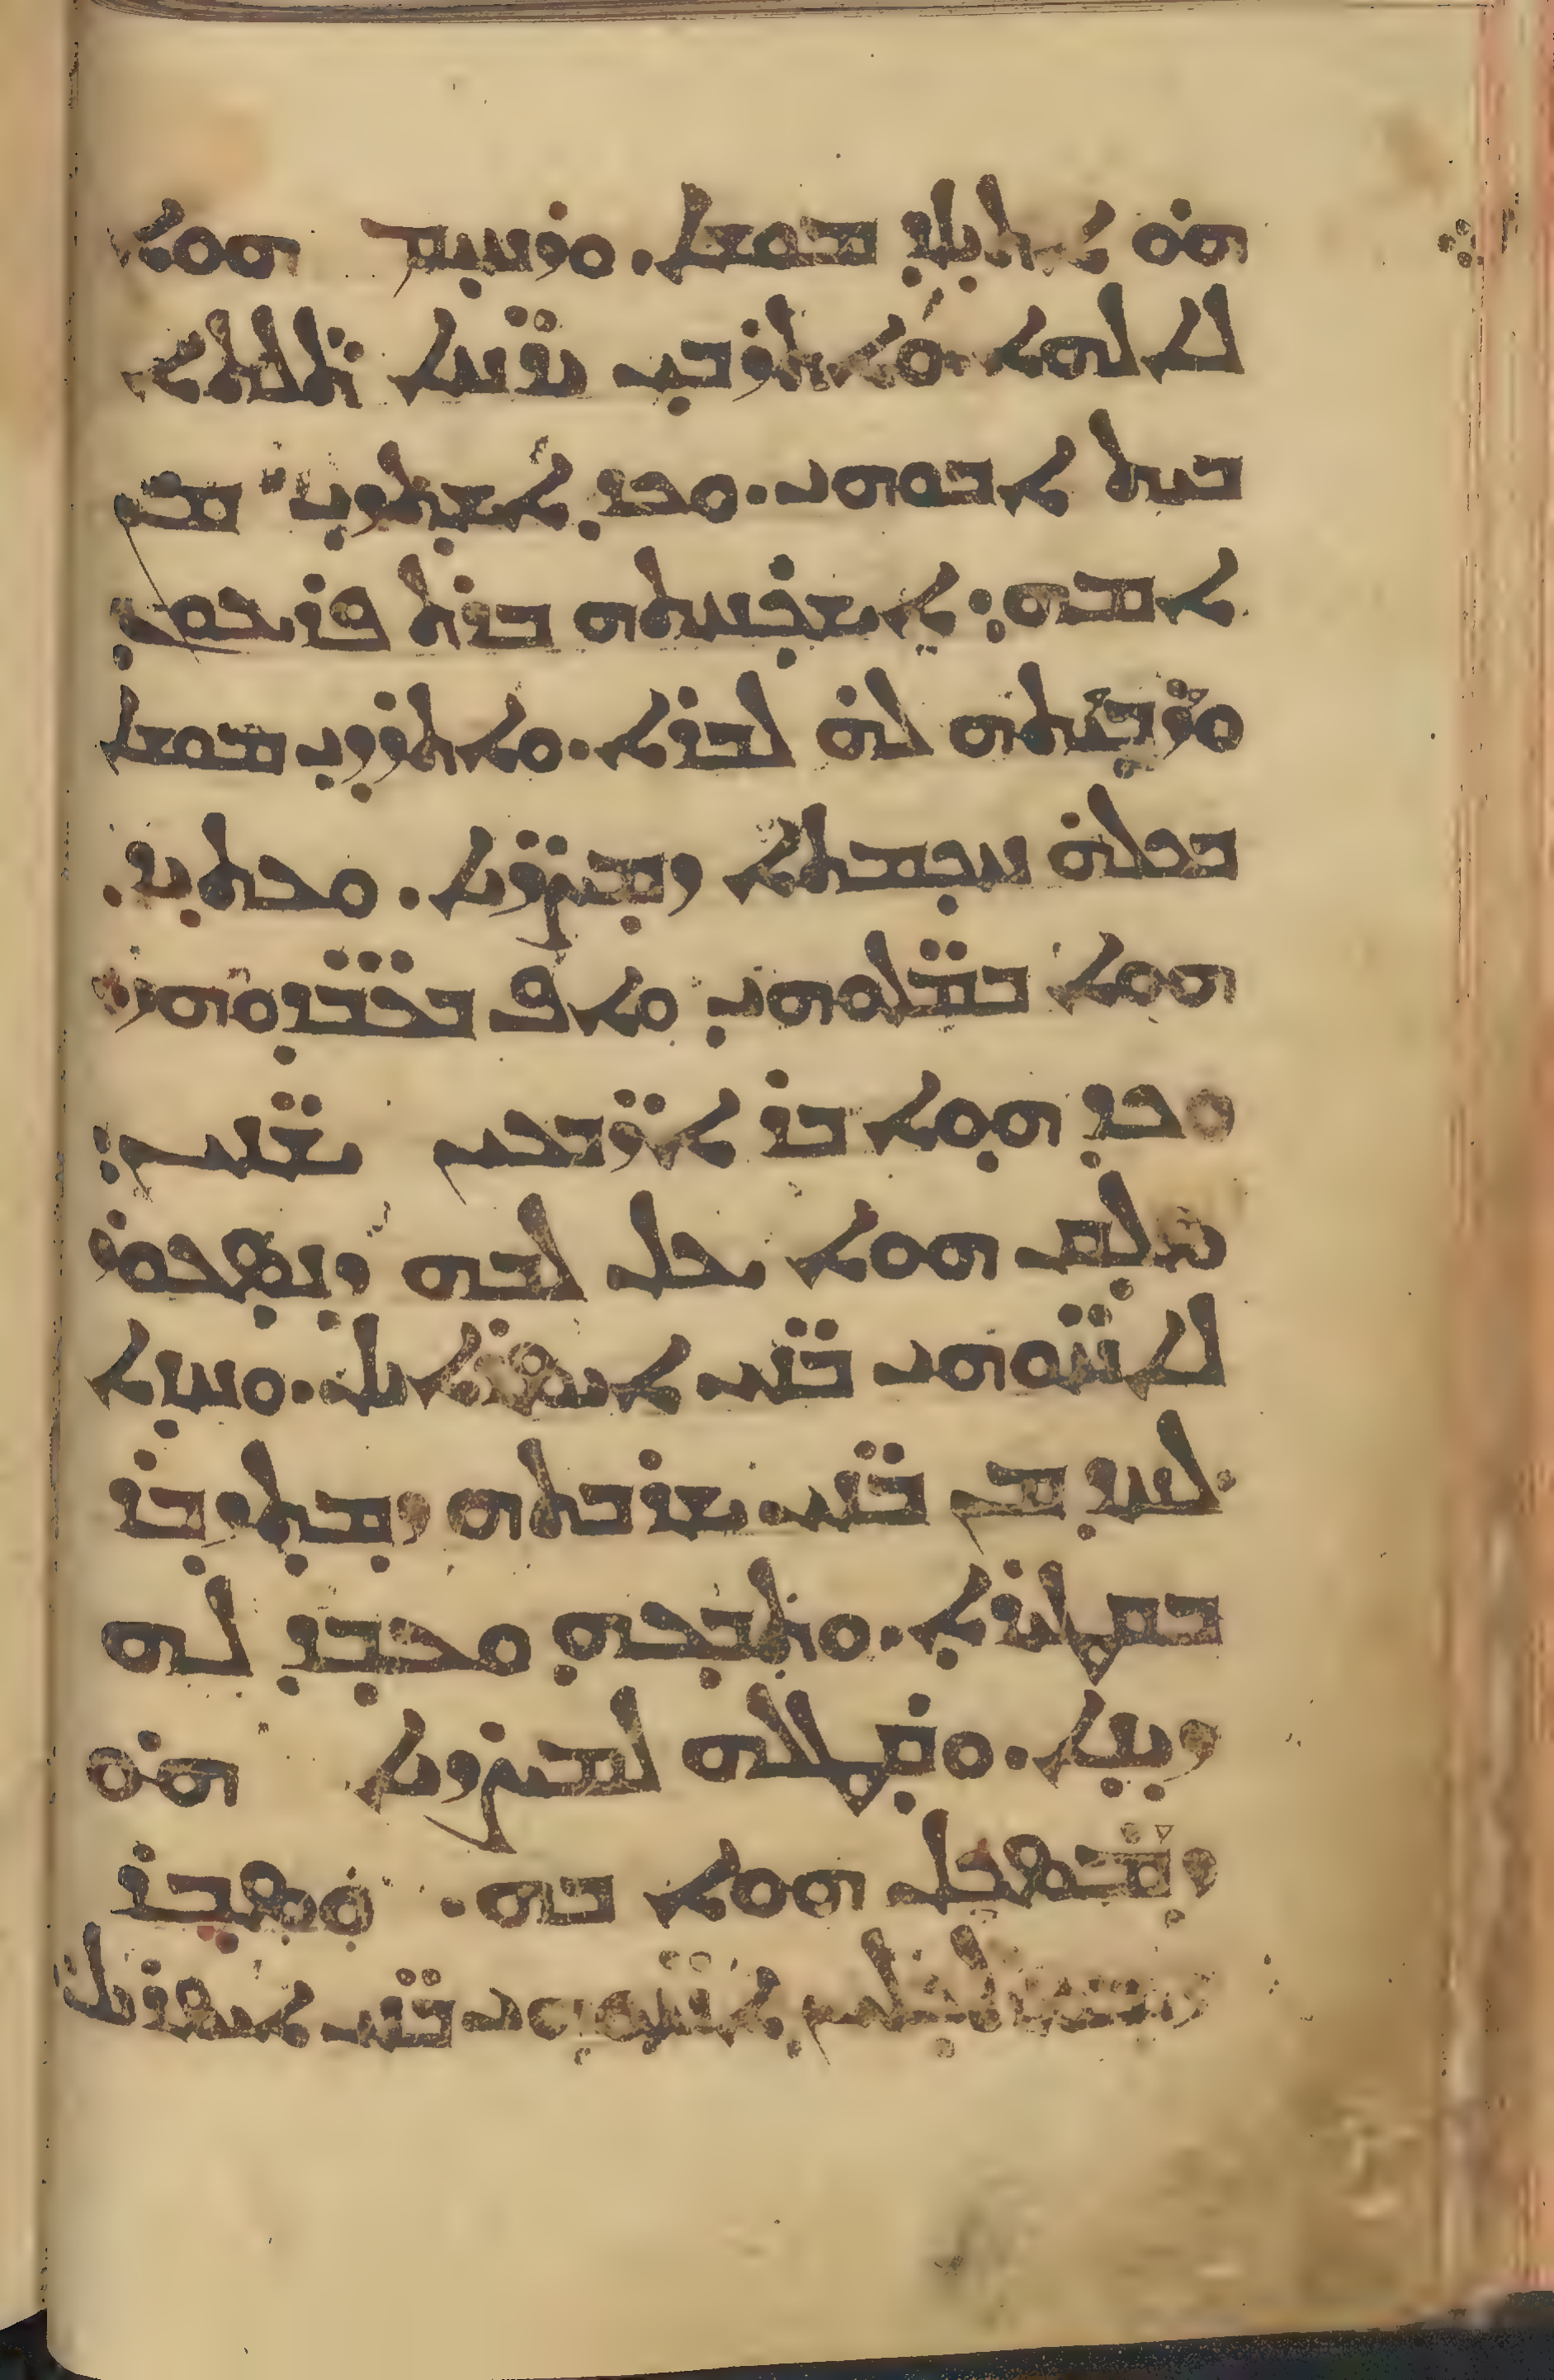 ܗܘ ܐܬܝܠܕ ܡܘܫܐ. ܘܪܚܝܡ ܗܘܐ
ܠܐܠܗܐ. ܘܐܬܪܒܝ ܝܪܚܐ ܬܠܬܐ
ܒܝܬ ܐܒܘܗܝ. ܘܟܕ ܐܫܬܕܝ ܡܢ
ܐܡܗ: ܐܫܟܚܬܗ ܒܪܬ ܦܪܥܘܢ
ܘܪܒܝܬܗ ܠܗ ܠܒܪܐ. ܘܐܬܪܕܝ ܡܘܫܐ
ܒܟܠܗ ܚܟܡܬܐ ܕܡܨܪܝܐ. ܘܥܬܝܕ
ܗܘܐ ܒܡܠܘܗܝ ܘܐܦ ܒܥܒܕܘܗܝ
ܘܟܕ ܗܘܐ ܒܪ ܐܪܒܥܝܢ ܫܢܝܢ:
ܣܠܩ ܗܘܐ ܥܠ ܠܒܗ ܕܢܣܥܘܪ
ܠܐܚܘܗܝ ܒܢܝ ܐܝܣܪܐܝܠ. ܘܚܙܐ
ܠܚܕ ܡܢ ܒܢܝ ܫܪܒܬܗ ܕܡܬܕܒܪ
ܒܩܛܝܪܐ. ܘܬܒܥܗ ܘܥܒܕ ܠܗ
ܕܝܢܐ. ܘܩܛܠܗ ܠܡܨܪܝܐ ܗܘ
ܕܡܣܟܠ ܗܘܐ ܒܗ. ܘܣܒܪ
ܕܡܣܬܟܠܝܢ ܐܚܘܗܝ ܒܢܝ ܐܝܣܪܝܠ